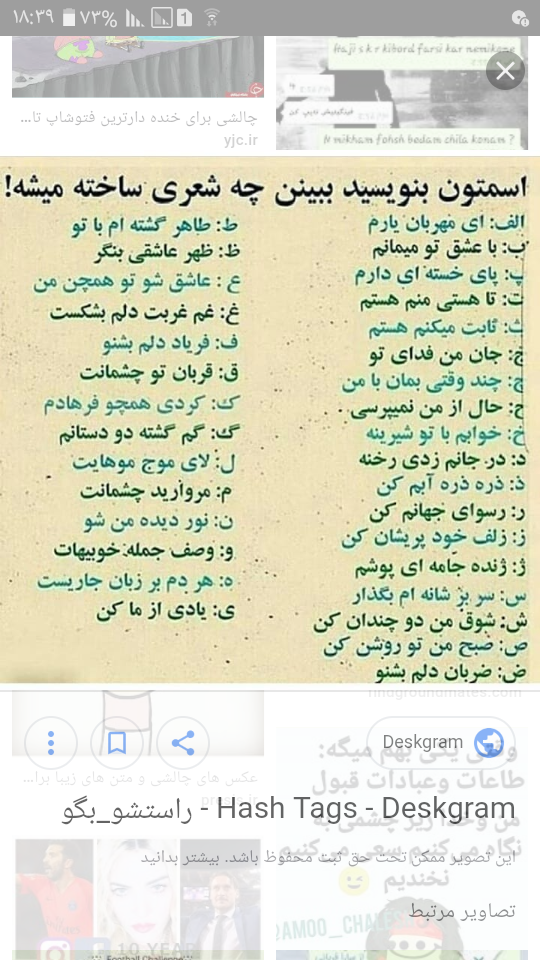 ۱۸:۳۹
۷۳%
1
Iraji s k r kibord farsi kar nemikone
N mikham fohsh bedam chila konam ?
چالشی برای خنده دارترین فتوشاپ تا...
yjc.ir
اسمتون بنویسید ببینن چه شعری ساخته میشه!
الف: ای مهربان یارم
ب: با عشق تو میمانم
پ: پای خسته ای دارم
ت: تا هستی منم هستم
ث: ثابت میکنم هستم
ج: جان من فدای تو
چ: چند وقتی بمان با من
ح: حال از من نمیپرسی..
خ: خوابم با تو شیرینه
د: در جانم زدی رخنه
ذ: ذره ذره آبم کن
ر: رسوای جهانم کن
ز: زلف خود پریشان کن
ژ: ژنده جامه ای پوشم
س: سر بر شانه ام بگذار
ش: شوق من دو چندان کن
ص: صبح من تو روشن کن
ض: ضربان دلم بشنو
ط: طاهر گشته ام با تو
ظ: ظهر عاشقی بنگر
ع : عاشق شو تو همچن من
غ: غم غربت دلم بشکست
ف: فریاد دلم بشنو
ق: قربان تو چشمانت
ک: کردی همچو فرهادم
گ: گم گشته دو دستانم
ل: لای موج موهایت
م: مروارید چشمانت
ن: نور دیده من شو
و: وصف جمله خوبیهات
ه: هر دم بر زبان جاریست
ی: یادی از ما کن
findgroundmates.com
Deskgram
وقتی یکی بهم میگه:
طاعات وعبادات قبول
من وخدا زیر چشمی به
نگاه می کنیم سعی می کنیم
نخندیم
عکس های چالشی و متن های زیبا برا...
راستشو_بگو - Hash Tags - Deskgram
این تصویر ممکن تحت حق ثبت محفوظ باشد. بیشتر بدانید
تصاویر مرتبط
@AMOO_CHALESH
10 YEAR
Football Challenge